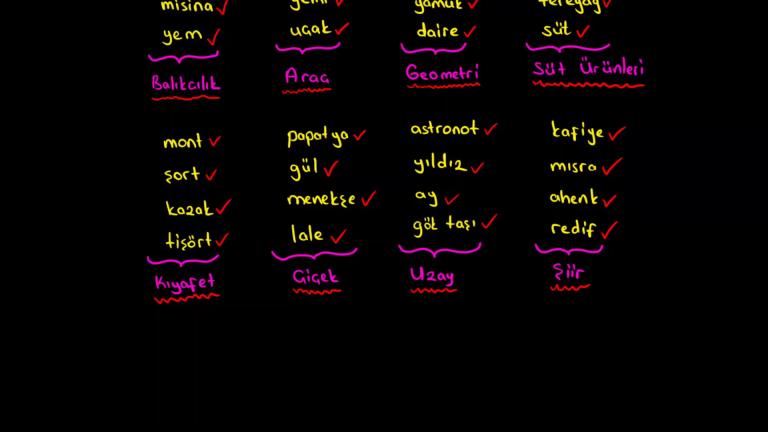 misina gemi yamuk tereyağ
yem uçak daire süt
Balıkcılık Araç Geometri Süt Ürünleri
mont papatya astronot kafiye
şort gül yıldız mısra
kazak menekşe ay ahenk
tişört lale gök taşı redif
Kıyafet Çiçek Uzay Şiir